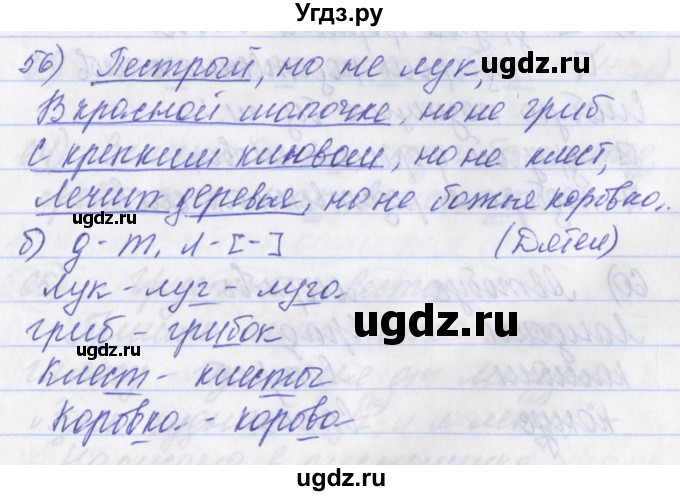 Угдз.ру
56) Пестрый, но не лук,
ugdz.ru
В красной шапочке, но не гриб
С крепким клювом, но не клест,
Лечит деревья, но не божья коровка.
ugdz.ru
б) д-т, л-[-] (Дятел)
лук - луг - луга
ugdz.ru
гриб - грибок
ugdz.ru
клест - клесты
Коровка - корова
ugdz.ru
ugdz.ru